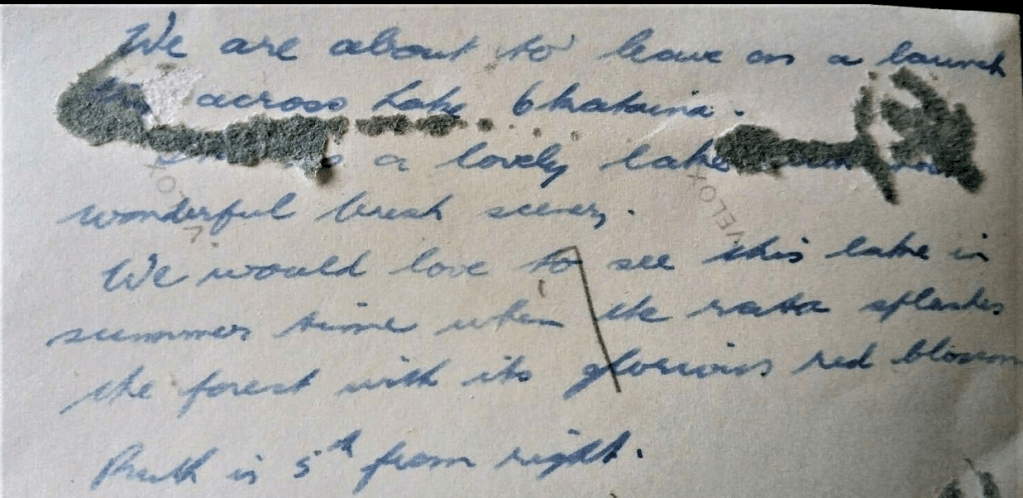 We are about to leave on a launch
across Lake Okataina.
a lovely lake
wonderful bush scenery.
We would love to see this lake in
summer time when the rata splashes
the forest with its glorious red blossom
Ruth is 5th from right.
VELOX
VELOX